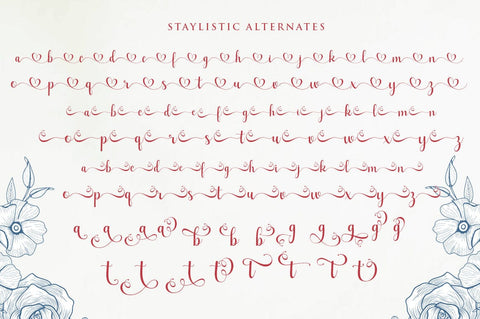 STAYLISTIC ALTERNATES
a b c d e f g h i j k l m n
o p q r s t u v w x y z
a b c d e f g h i j k l m n
o p q r s t u v w x y z
a b c d e f g h i j k l m n
o p q r s t u v w x y z
a a a a b b b b g g g g
t t t t t t t t